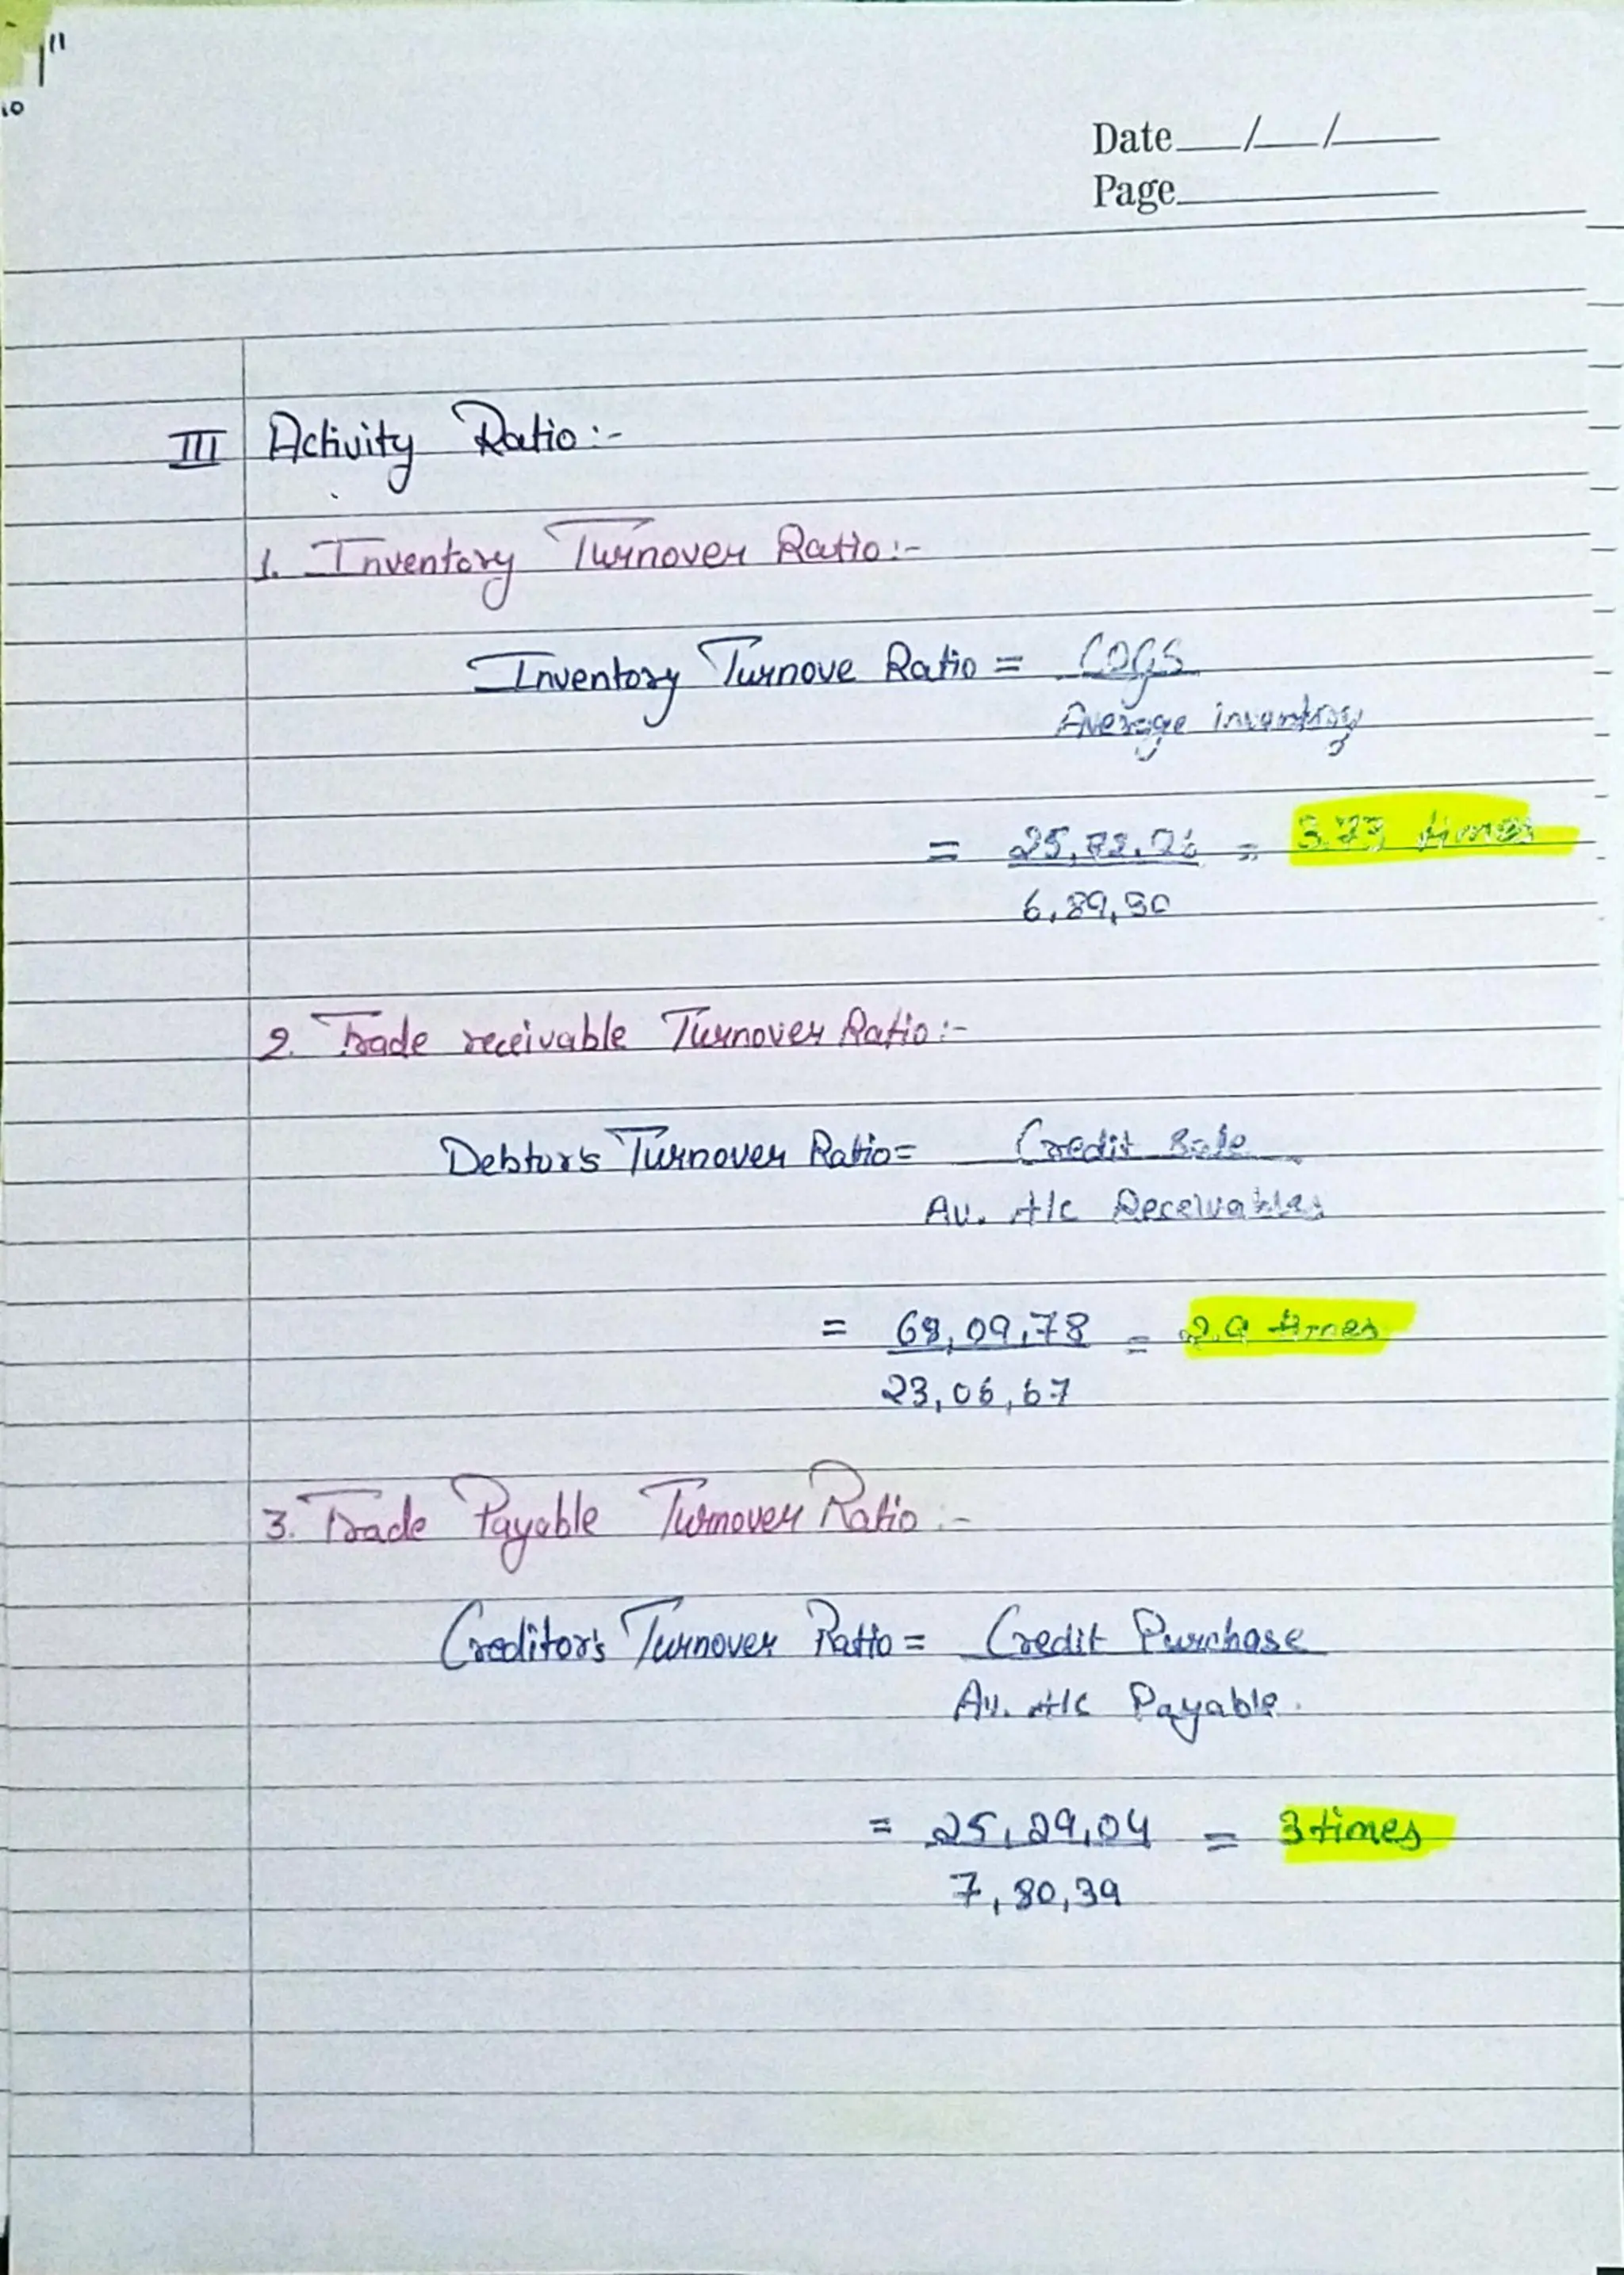 11
10
Date / /
Page
III Activity Ratio:-
1. Inventory Turnover Ratio:-
Inventory Turnove Ratio = COGS
Average inventory
= =  times
6,89,90
2. Trade receivable Turnover Ratio:-
Debtor's Turnover Ratio= Credit Sale
Av. A/c Receivables
= 68,09,78 = 2.9 times
23,06,67
3. Trade Payable Turnover Ratio:-
Creditor's Turnover Ratio = Credit Purchase
Av. A/c Payable.
= 25,29,04 = 3 times
7,80,39